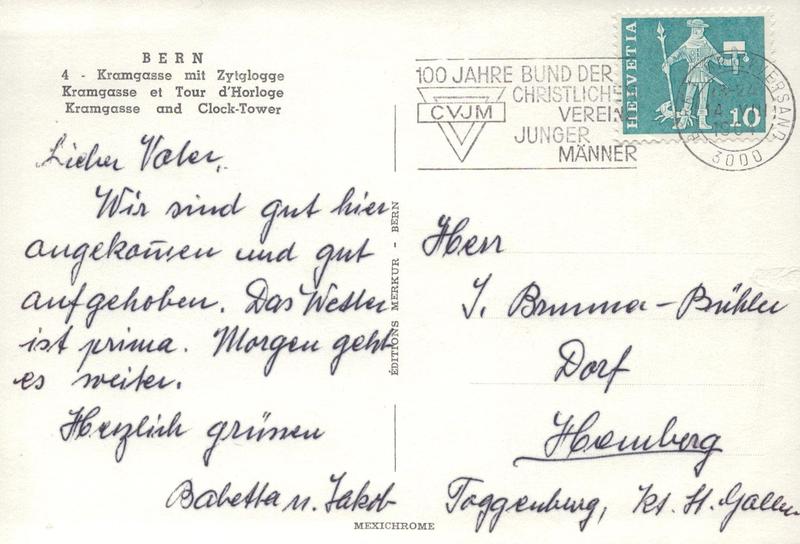 BERN
4 - Kramgasse mit Zytglogge
Kramgasse et Tour d'Horloge
Kramgasse and Clock-Tower
Lieber Vater,
Wir sind gut hier
angekommen und gut
aufgehoben. Das Wetter
ist prima. Morgen geht
es weiter.
Herzlich grüssen
Babetta u. Jakob
ÉDITIONS MERKUR - BERN
MEXICHROME
100 JAHRE BUND DER
CHRISTLICHE
VEREIN
JUNGER
MÄNNER
CVJM
HELVETIA
10
3000
Herr
J. Brunna-Bühler
Dorf
Hemberg
Toggenburg, Kt. St. Gallen